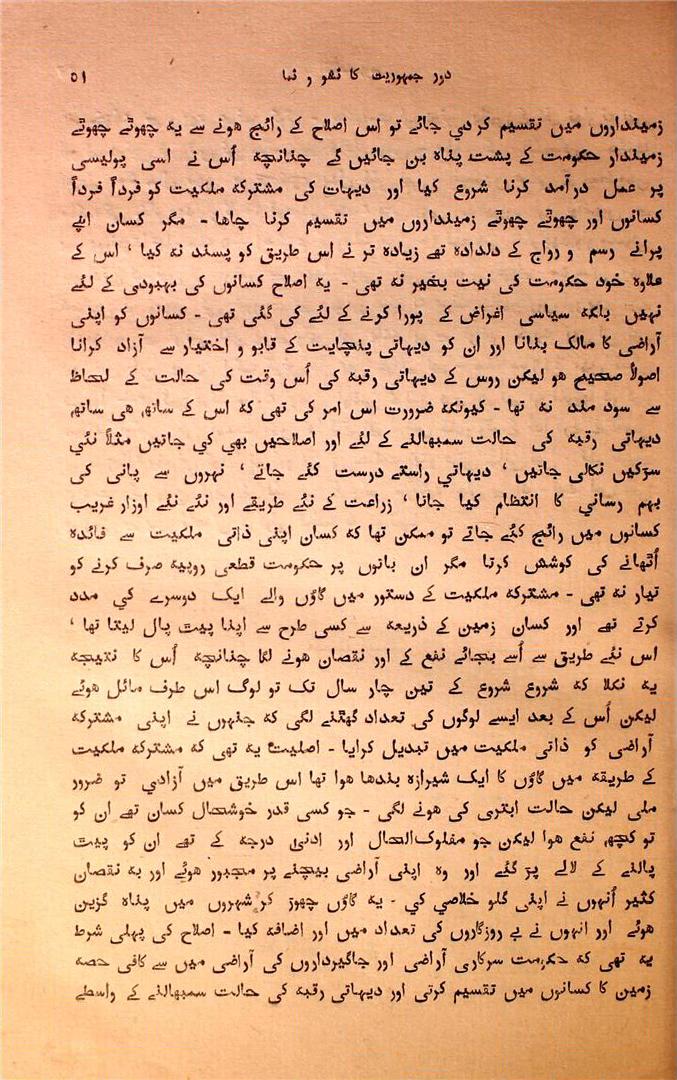 دور جمہوریت کا نشو و نما ۵۱
زمینداروں میں تقسیم کردی جائے تو اس اصلاح کے رائج ہونے سے یہ چھوٹے چھوٹے
زمیندار حکومت کے پشت پناہ بن جائیں گے چنانچہ اُس نے اسی پولیسی
پر عمل درآمد کرنا شروع کیا اور دیہات کی مشترکہ ملکیت کو فرداً فرداً
کسانوں اور چھوٹے چھوٹے زمینداروں میں تقسیم کرنا چاہا - مگر کسان اپنے
پرانے رسم و رواج کے دلدادہ تھے زیادہ تر نے اس طریق کو پسند نہ کیا ' اس کے
علاوہ خود حکومت کی نیت بخیر نہ تھی - یہ اصلاح کسانوں کی بہبودی کے لئے
نہیں بلکہ سیاسی اغراض کے پورا کرنے کے لئے کی گئی تھی - کسانوں کو اپنی
آراضی کا مالک بنانا اور ان کو دیہاتی پنچایت کے قابو و اختیار سے آزاد کرانا
اصولاً صحیح ہو لیکن روس کے دیہاتی رقبہ کی اُس وقت کی حالت کے لحاظ
سے سود مند نہ تھا - کیونکہ ضرورت اس امر کی تھی کہ اس کے ساتھ ہی ساتھ
دیہاتی رقبہ کی حالت سمبھالنے کے لئے اور اصلاحیں بھی کی جاتیں مثلاً نئی
سڑکیں نکالی جاتیں ' دیہاتی راستے درست کئے جاتے ' نہروں سے پانی کی
بہم رسانی کا انتظام کیا جاتا ' زراعت کے نئے طریقے اور نئے نئے اوزار غریب
کسانوں میں رائج کئے جاتے تو ممکن تھا کہ کسان اپنی ذاتی ملکیت سے فائدہ
اُٹھانے کی کوشش کرتا مگر ان باتوں پر حکومت قطعی روپیہ صرف کرنے کو
تیار نہ تھی - مشترکہ ملکیت کے دستور میں گاؤں والے ایک دوسرے کی مدد
کرتے تھے اور کسان زمین کے ذریعہ سے کسی طرح سے اپنا پیٹ پال لیتا تھا '
اس نئے طریق سے اُسے بجائے نفع کے اور نقصان ہونے لگا چنانچہ اُس کا نتیجہ
یہ نکلا کہ شروع شروع کے تین چار سال تک تو لوگ اس طرف مائل ہوئے
لیکن اُس کے بعد ایسے لوگوں کی تعداد گھٹنے لگی کہ جنہوں نے اپنی مشترکہ
آراضی کو ذاتی ملکیت میں تبدیل کرایا - اصلیت یہ تھی کہ مشترکہ ملکیت
کے طریقہ میں گاؤں کا ایک شیرازہ بندھا ہوا تھا اس طریق میں آزادی تو ضرور
ملی لیکن حالت ابتری کی ہونے لگی - جو کسی قدر خوشحال کسان تھے ان کو
تو کچھ نفع ہوا لیکن جو مفلوک‌الحال اور ادنیٰ درجہ کے تھے ان کو پیٹ
پالنے کے لالے پڑ گئے اور وہ اپنی آراضی بیچنے پر مجبور ہوئے اور بہ نقصان
کثیر اُنہوں نے اپنی گلو خلاصی کی - یہ گاؤں چھوڑ کر شہروں میں پناہ گزین
ہوئے اور انہوں نے بے روزگاروں کی تعداد میں اور اضافہ کیا - اصلاح کی پہلی شرط
یہ تھی کہ حکومت سرکاری آراضی اور جاگیرداروں کی آراضی میں سے کافی حصہ
زمین کا کسانوں میں تقسیم کرتی اور دیہاتی رقبہ کی حالت سمبھالنے کے واسطے